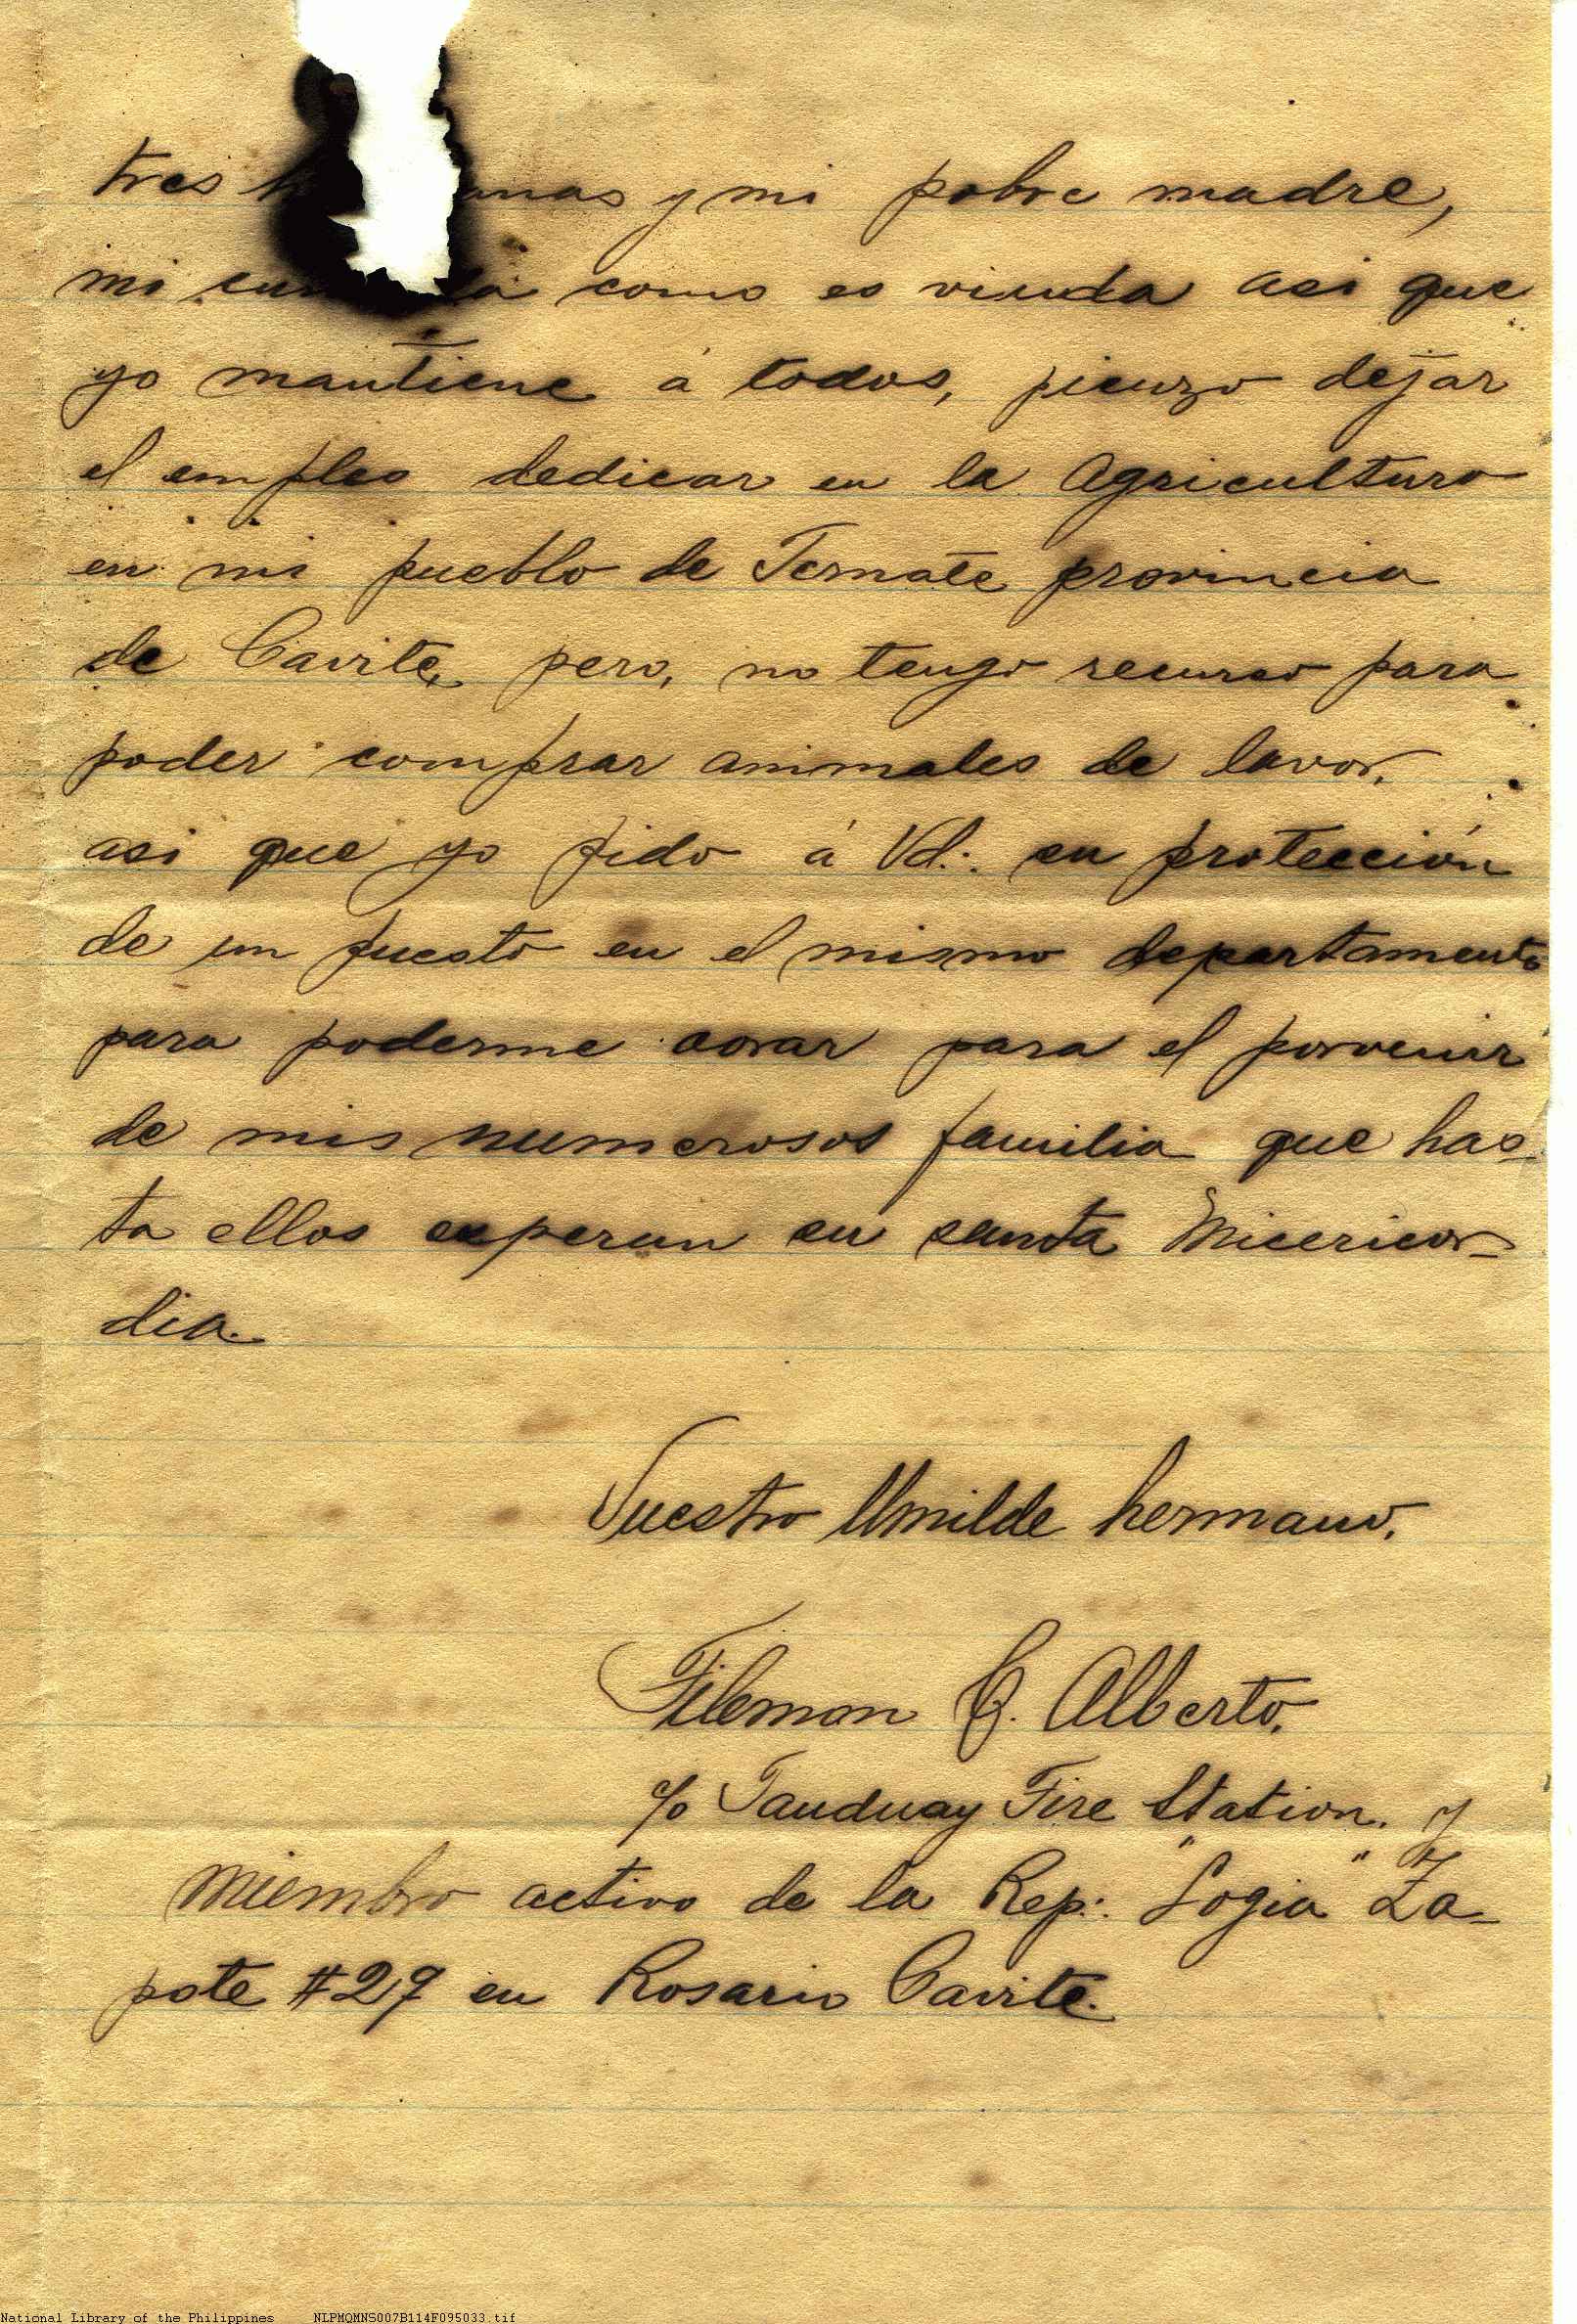 tres h   anas y mi pobre madre,
mi cuñada como es viuda asi que
yo mantiene á todos, pienzo dejar
el empleo dedicar en la agricultura
en mi pueblo de Ternate provincia
de Cavite, pero, no tengo recurso para
poder comprar animales de lavor,
asi que yo pido á Vd.: su protección
de un puesto en el mismo departamento
para poderme aorar para el porvenir
de mis numerosos familia que has-
ta ellos esperan su santa Micericor-
dia.
Vuestro Umilde hermano.
Filemon C. Alberto.
c/o Tanduay Fire Station. y
miembro activo de la Rep:. "Logia" Za-
pote #27 en Rosario Cavite.
National Library of the Philippines NLPMQMNS007B114F095033.tif